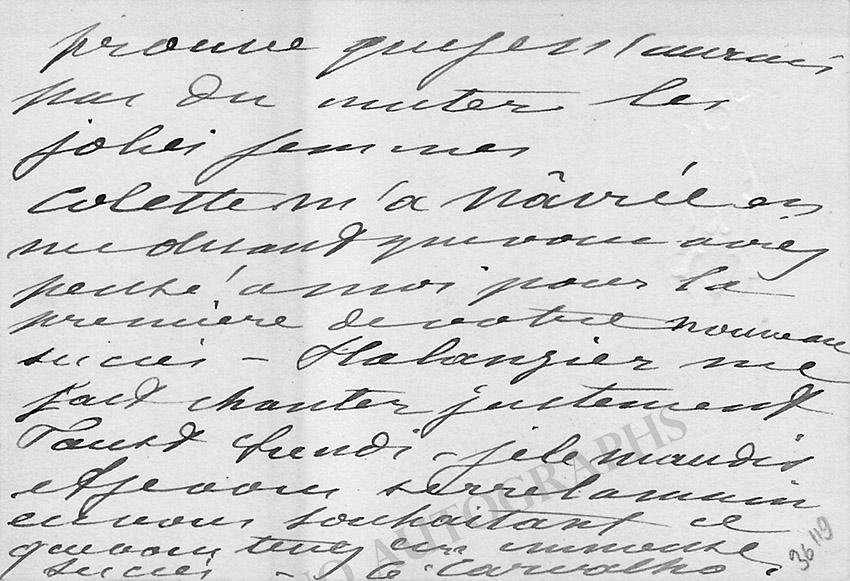 prouve que je n'aurais
pas du imiter les
jolies femmes
Colette m'a navrée en
me disant que vous aviez
pensé à moi pour la
première de votre nouveau
succès – Halanzier me
fait chanter justement
Faust Lundi – je le maudis
et je vous serre la main
en vous souhaitant ce
que vous tenez un immense
succès – C. Carvalho.
36119
AUTOGRAPHS